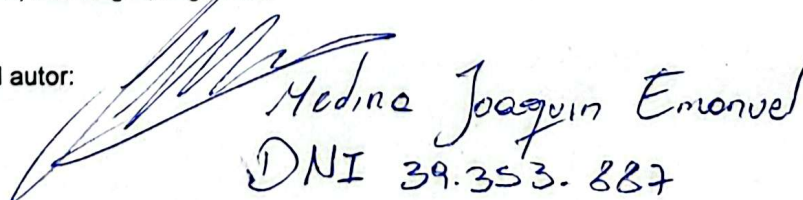 autor:
Medina Joaquin Emanuel
DNI 39.353.887